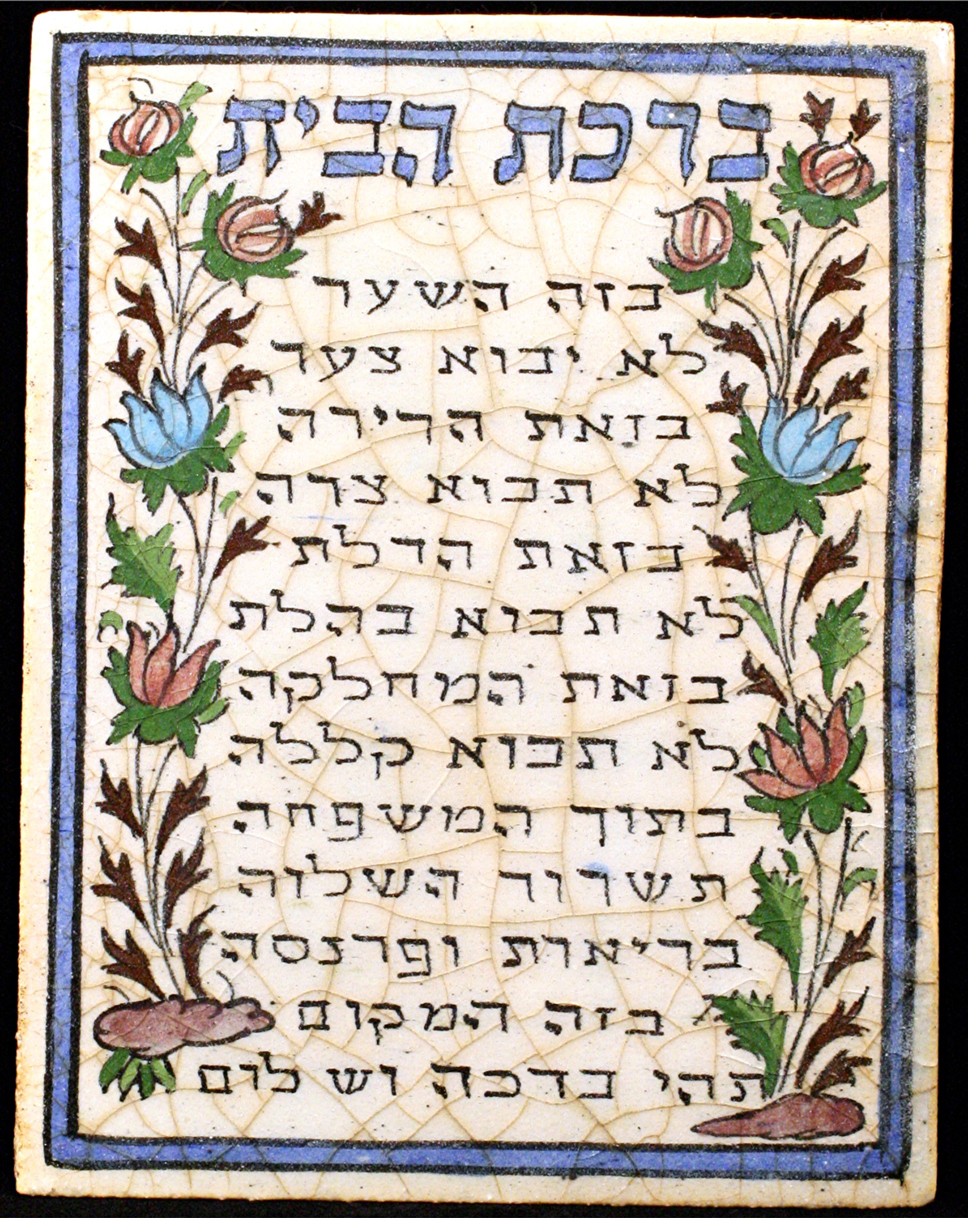 ברכת הבית
בזה השער
לא יבוא צער
בזאת הדירה
לא תבוא צרה
בזאת הדלת
לא תבוא בהלת
בזאת המחלקה
לא תבוא קללה
בתוך המשפחה
תשרור השלוה
בריאות ופרנסה
בזה המקום
תהי ברכה ושלום